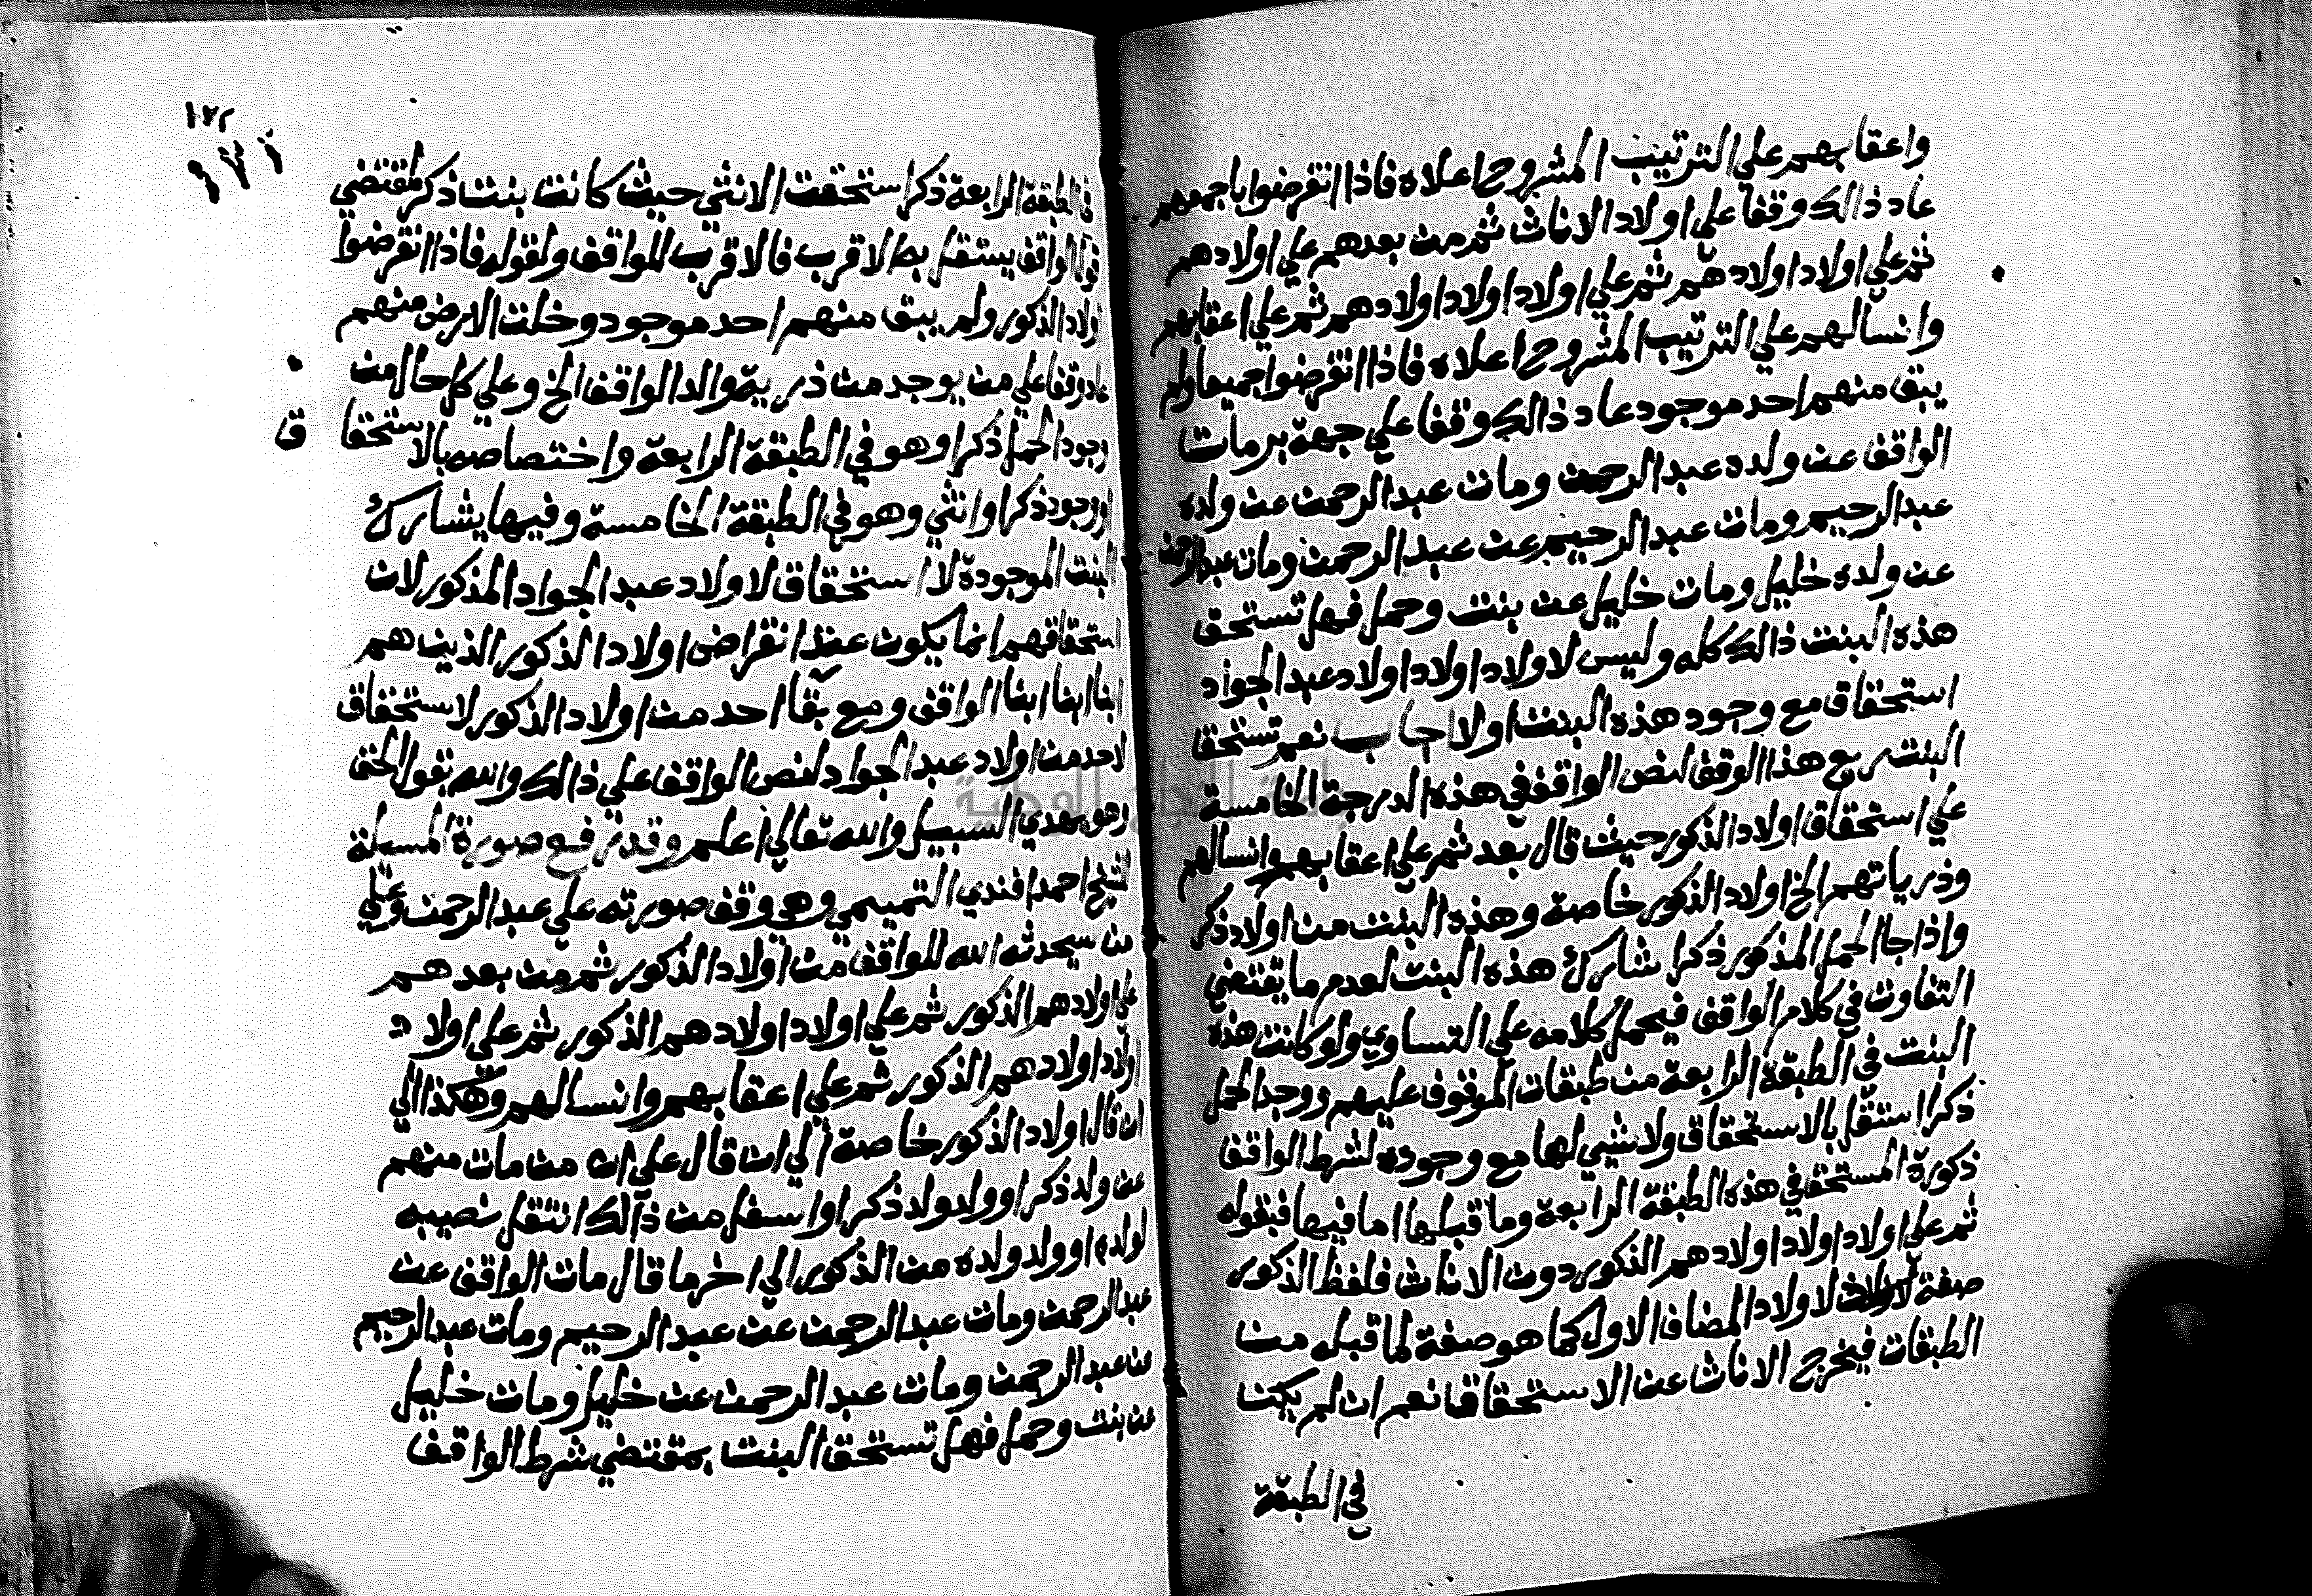 واعقابهم علي الترتيب المشروح اعلاه فاذا انقرضوا باجمعهم
عاد ذالك وقفا علي اولاد الاناث ثم من بعدهم علي اولادهم
ثم علي اولاد اولادهم ثم علي اولاد اولاد اولادهم ثم علي اعقابهم
وانسالهم علي الترتيب المشروح اعلاه فاذا انقرضوا جميعا ولم
يبق منهم احد موجود عاد ذالك وقفا علي جهة بر مات
الواقف عن ولده عبد الرحمن ومات عبد الرحمن عن ولده
عبد الرحيم ومات عبد الرحيم عن عبد الرحمن ومات عبد الرحمن
عن ولده خليل ومات خليل عن بنت وحمل فهل تستحق
هذه البنت ذالك كله وليس لاولاد اولاد اولاد عبد الجواد
استحقاق مع وجود هذه البنت اولا اجاب نعم تستحق
البنت ريع هذا الوقف لنص الواقف في هذه الدرجة الخامسة
علي استحقاق اولاد الذكور حيث قال بعد ثم علي اعقابهم وانسالهم
وذرياتهم الخ اولاد الذكور خاصة وهذه البنت من اولاد ذكر
واذا جا الحمل المذكور ذكرا شارك هذه البنت لعدم ما يقتضي
التفاوت في كلام الواقف فيحمل كلامه علي التساوي ولو كانت هذه
البنت في الطبقة الرابعة من طبقات الموقوف عليهم ووجد الحمل
ذكرا استقل بالاستحقاق ولا شيي لها مع وجوده لشرط الواقف
ذكورة المستحق في هذه الطبقة الرابعة وما قبلها اما فيها فبقوله
ثم علي اولاد اولاد اولادهم الذكور دون الاناث فلفظ الذكور
صفة لاولاد الاولاد المضاف الاول كما هو صفة لما قبله من
الطبقات فيخرج الاناث عن الاستحقاق نعم ان لم يكن
في الطبقة
١٢٢
في الطبقة الرابعة ذكر استحقت الانثي حيث كانت بنت ذكر مقتضي
قول الواقف يستقل به الاقرب فالاقرب للواقف ولقوله فاذا انقرضوا
اولاد الذكور ولم يبق منهم احد موجود وخلت الارض منهم
عاد وقفا علي من يوجد من ذرية والد الواقف الخ وعلي كل حال من
وجود الحمل ذكرا وهو في الطبقة الرابعة واختصاصه بالاستحقاق
او وجود ذكرا او انثي وهو في الطبقة الخامسة وفيها يشارك
البنت الموجودة لا استحقاق لاولاد عبد الجواد المذكور لان
استحقاقهم انما يكون عند انقراض اولاد الذكور الذين هم
ابنا ابنا ابنا الواقف ومع بقا احد من اولاد الذكور لا ستحقاق
لاحد من اولاد عبد الجواد لنص الواقف علي ذالك والله يقول الحق
وهو يهدي السبيل والله تعالي اعلم وقد رفع صورة المسيلة
الشيخ احمد افندي التميمي وهو وقف صورته علي عبد الرحمن وعلي
من سيحدثه الله للواقف من اولاد الذكور ثم من بعدهم
علي اولادهم الذكور ثم علي اولاد اولادهم الذكور ثم علي اولاد
اولاد اولادهم الذكور ثم علي اعقابهم وانسالهم وهكذا الي
ان قال اولاد الذكور خاصة الي ان قال علي ان من مات منهم
عن ولد ذكر او ولد ولد ذكر او اسفل من ذالك انتقل نصيبه
لولده او ولد ولده من الذكور الي اخر ما قال مات الواقف عن
عبد الرحمن ومات عبد الرحمن عن عبد الرحيم ومات عبد الرحيم
عن عبد الرحمن ومات عبد الرحمن عن خليل ومات خليل
عن بنت وحمل فهل تستحق البنت بمقتضي شرط الواقف